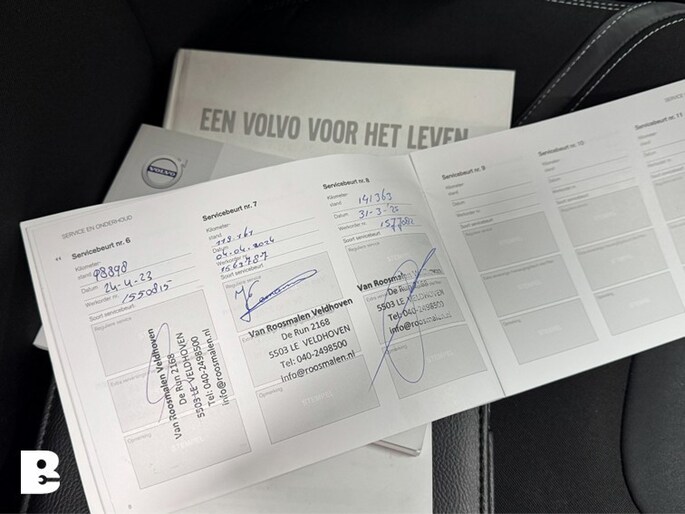 EEN VOLVO VOOR HET LEVEN
VOLVO
SERVICE EN ONDERHOUD
Servicebeurt nr. 6
Kilometer-
stand 98898
Datum 24-4-23
Werkorder nr. 1550815
Soort servicebeurt:
Reguliere service
Van Roosmalen Veldhoven
De Run 2168
5503 LE VELDHOVEN
Tel: 040-2498500
Info@roosmalen.nl
Opmerking
Servicebeurt nr. 7
Kilometer-
stand
Datum 04-04-2024
Werkorder nr. 1563787
Soort servicebeurt:
Reguliere service
Van Roosmalen Veldhoven
De Run 2168
5503 LE VELDHOVEN
Tel: 040-2498500
Info@roosmalen.nl
Opmerking
Servicebeurt nr. 8
Kilometer-
stand 141363
Datum 31-3-'25
Werkorder nr.
Soort servicebeurt:
Reguliere service
Van Roosmalen Veldhoven
De Run 2168
5503 LE VELDHOVEN
Tel: 040-2498500
Info@roosmalen.nl
Opmerking
Servicebeurt nr. 9
Kilometer-
stand
Datum
Werkorder nr.
Soort servicebeurt:
Servicebeurt nr. 10
Kilometer-
stand
Datum
Werkorder nr.
Soort servicebeurt:
Servicebeurt nr. 11
Kilometer-
stand
Datum
SERVICE
B